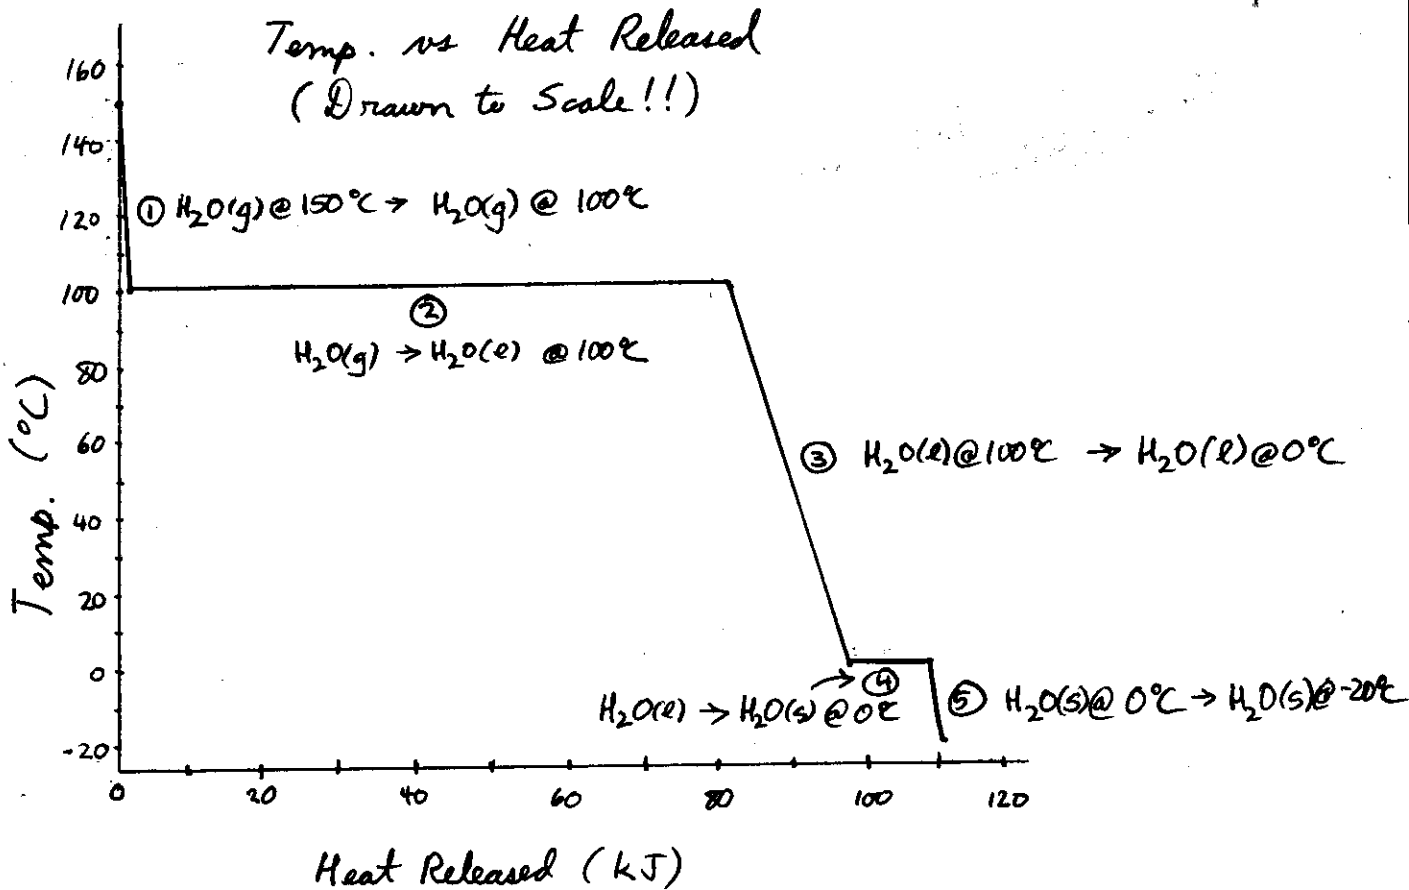 Temp. vs Heat Released
(Drawn to Scale!!)
160
140
120
100
80
60
40
20
0
-20
Temp. (°C)
① H₂O(g) @ 150°C → H₂O(g) @ 100°C
②
H₂O(g) → H₂O(l) @ 100°C
③ H₂O(l) @ 100°C → H₂O(l) @ 0°C
④
H₂O(l) → H₂O(s) @ 0°C
⑤ H₂O(s) @ 0°C → H₂O(s) @ -20°C
0 20 40 60 80 100 120
Heat Released (kJ)